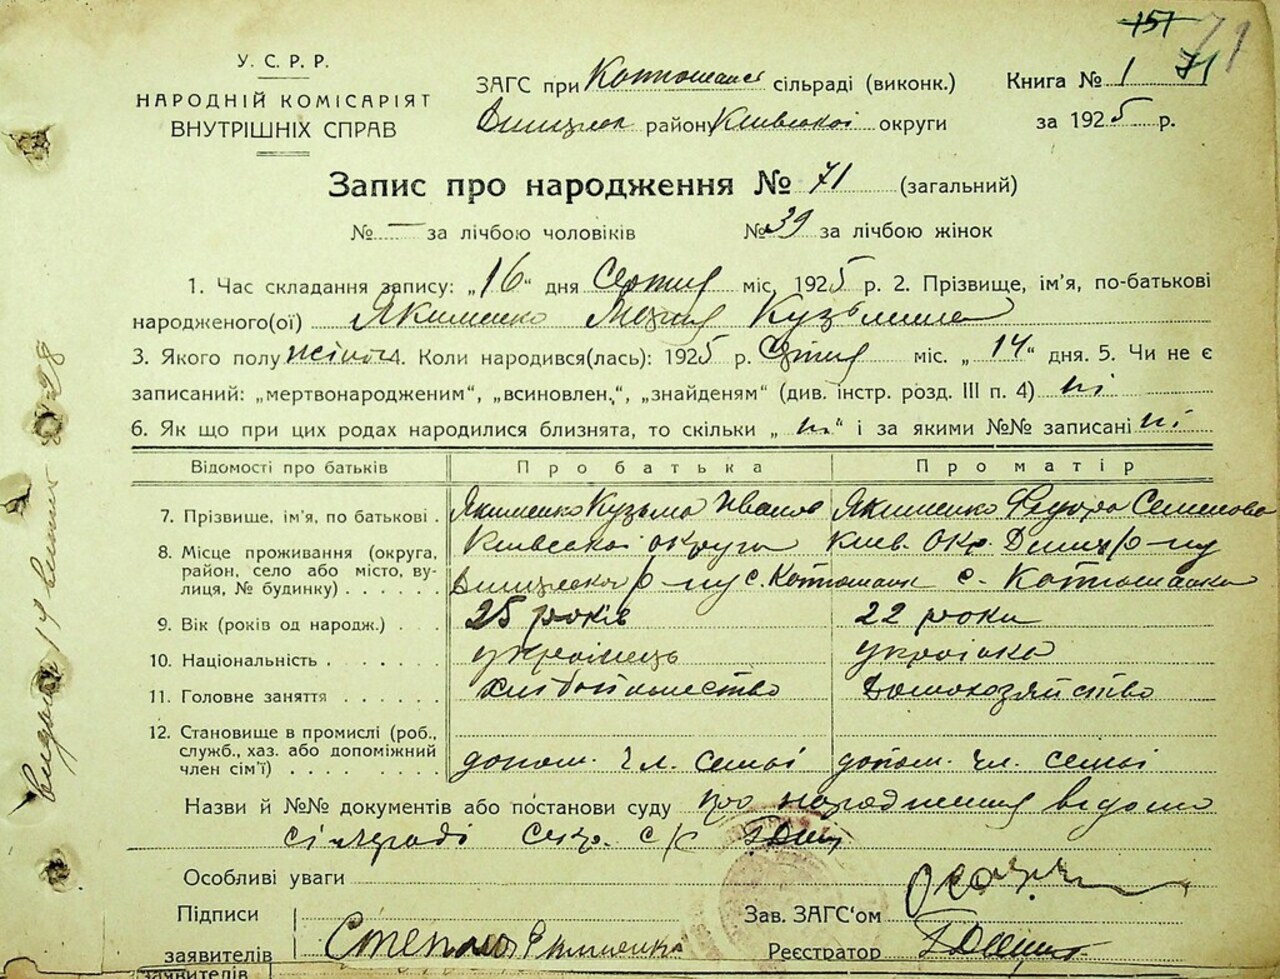 157 71
У. С. Р. Р.
НАРОДНІЙ КОМІСАРІЯТ
ВНУТРІШНІХ СПРАВ
ЗАГС при сільраді (виконк.)
району Київської округи
Книга № 1 71
за 1925 р.
Запис про народження № 71 (загальний)
№ — за лічбою чоловіків № 39 за лічбою жінок
1. Час складання запису: „16“ дня міс. 1925 р. 2. Прізвище, ім'я, по-батькові
народженого(ої) Якименко Марія Кузьмівна
3. Якого полу жіноч 4. Коли народився(лась): 1925 р. міс. „14“ дня. 5. Чи не є
записаний: „мертвонародженим“, „всиновлен.“, „знайденям“ (див. інстр. розд. III п. 4) ні
6. Як що при цих родах народилися близнята, то скільки „ні“ і за якими №№ записані ні
Відомості про батьків Про батька Про матір
7. Прізвище, ім'я, по батькові . Якименко Кузьма Иванов Якименко Семенова
8. Місце проживання (округа, район, село або місто, вулиця, № будинку) . . . . . .
Київської округи Київ. окр. р-ну
р-ну с. с.
9. Вік (років од народж.) . . . 25 років 22 роки
10. Національність . . . . . . українець українка
11. Головне заняття . . . . . . домохозяйство
12. Становище в промислі (роб., служб., хаз. або допоміжний член сім'ї) . . . . . . . .
допом. чл. семьі допом. чл. семьі
Назви й №№ документів або постанови суду про народження відомо
сільраді
Особливі уваги
Підписи
заявителів Степан Якименко
Зав. ЗАГС'ом
Реєстратор
заявителів